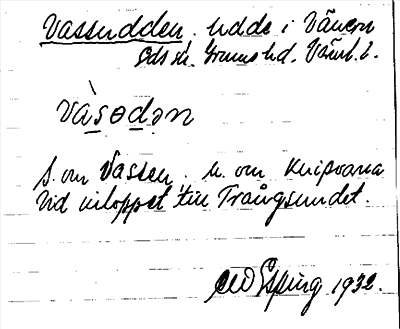 Vassudden. Udde i Vänern
Eds sn. Grums hd. Värml. l.
vàsɵdən
S. om Vassen. N. om Knipvarna
Vid inloppet till Trångsundet.
Espling 1932.